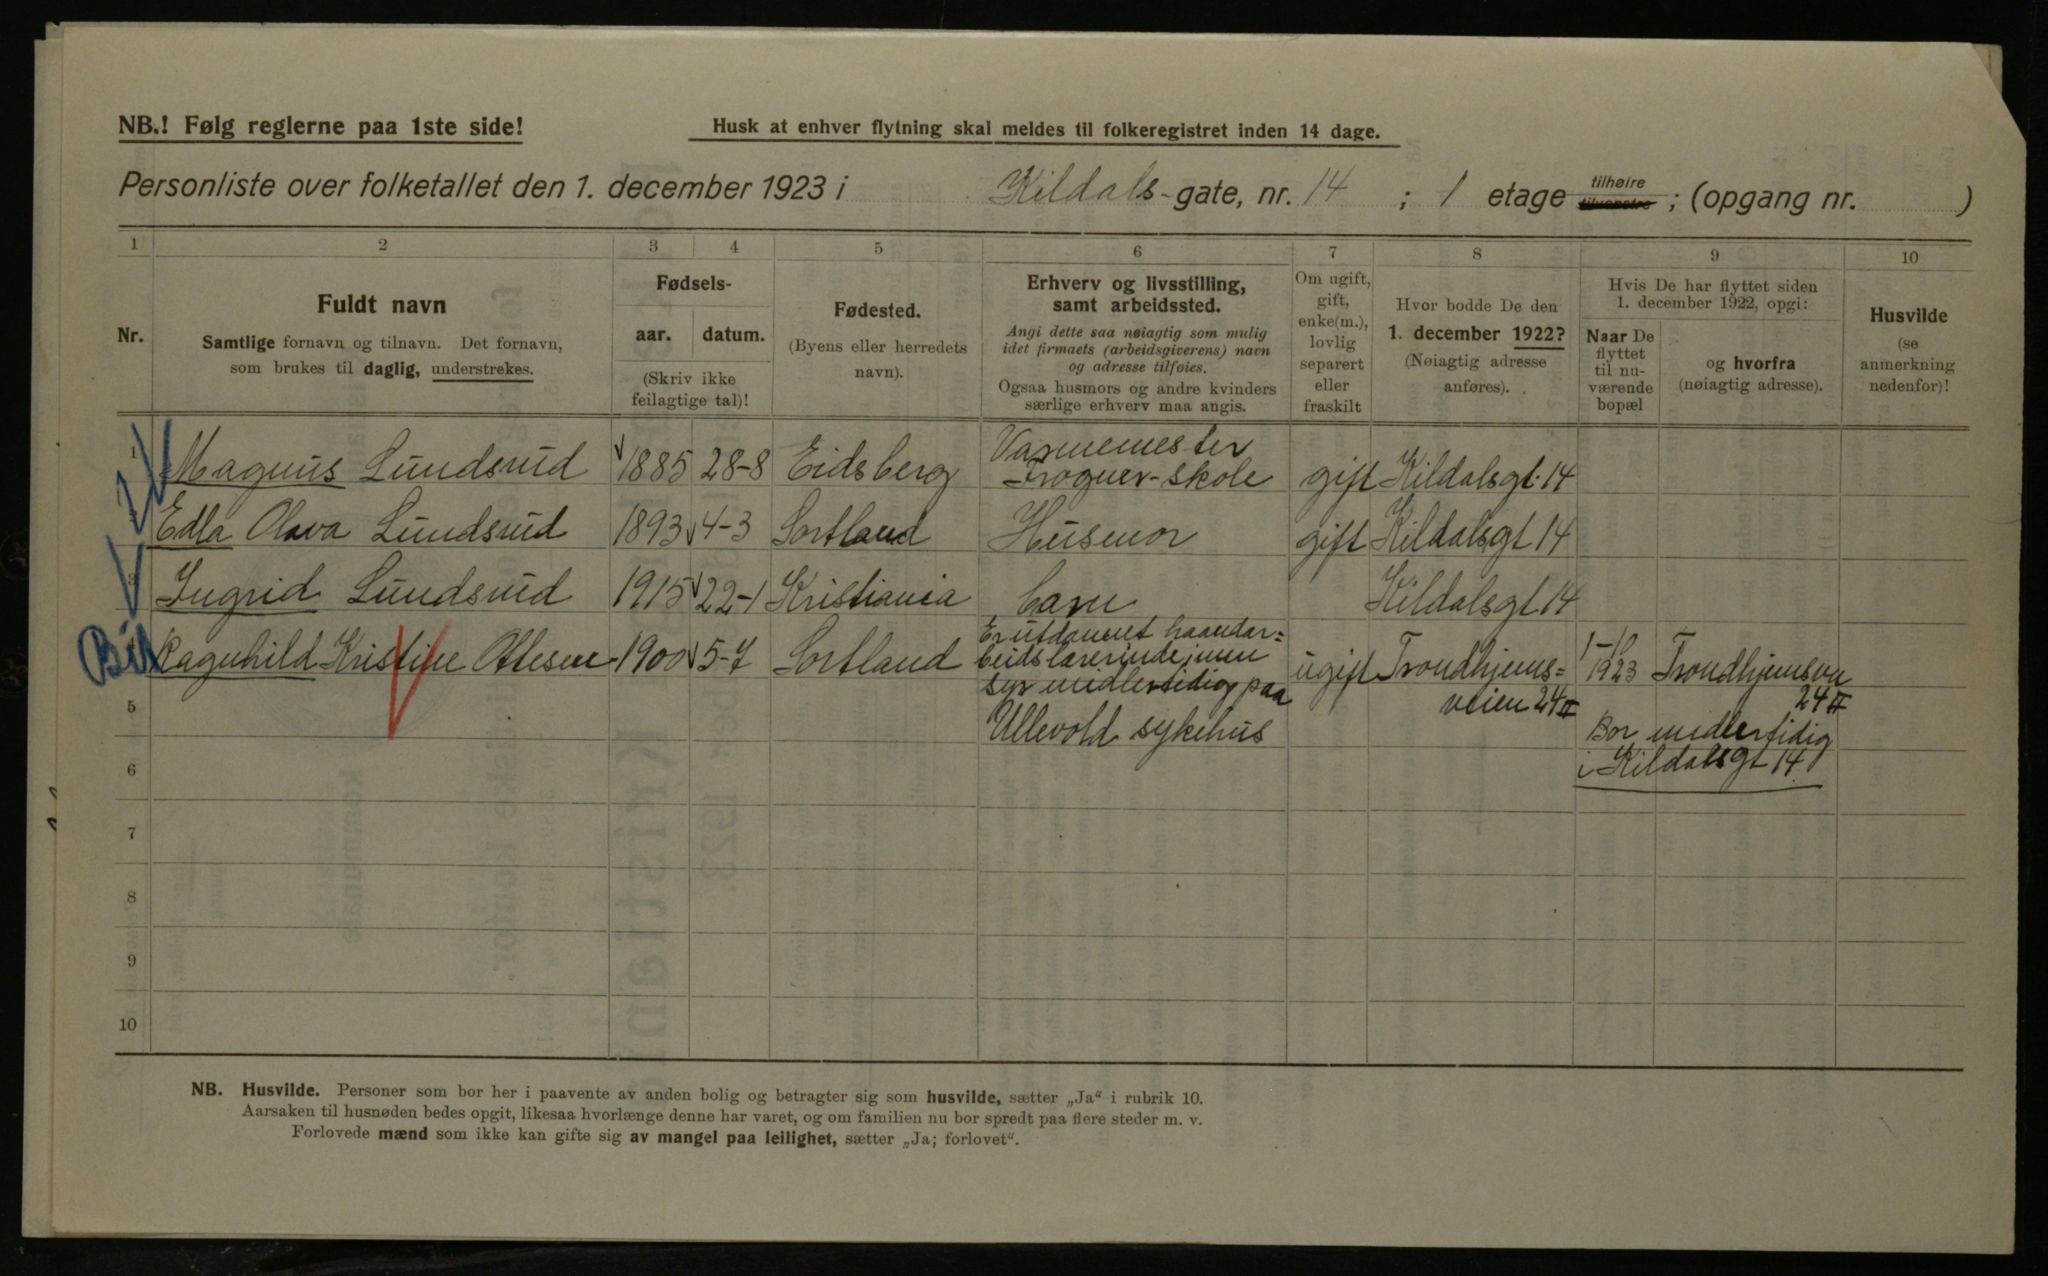 NB.! Følg reglerne paa 1ste side!
Husk at enhver flytning skal meldes til folkeregistret inden 14 dage.
Personliste over folketallet den 1. december 1923 i Kildals-gate, nr. 14 ; 1 etage tilhøire tilvenstre ; (opgang nr. )
1 2 3 4 5 6 7 8 9 10
Nr.
Fuldt navn
Samtlige fornavn og tilnavn. Det fornavn,
som brukes til daglig, understrekes.
Fødsels-
aar. datum.
(Skriv ikke
feilagtige tal)!
Fødested.
(Byens eller herredets
navn).
Erhverv og livsstilling,
samt arbeidssted.
Angi dette saa nøiagtig som mulig
idet firmaets (arbeidsgiverens) navn
og adresse tilføies.
Ogsaa husmors og andre kvinders
særlige erhverv maa angis.
Om ugift,
gift,
enke(m.),
lovlig
separert
eller
fraskilt
Hvor bodde De den
1. december 1922?
(Nøiagtig adresse
anføres).
Hvis De har flyttet siden
1. december 1922, opgi:
Naar De
flyttet
til nu-
værende
bopæl
og hvorfra
(nøiagtig adresse).
Husvilde
(se
anmerkning
nedenfor)!
1 Magnus Lundsrud 1885 28-8 Eidsberg Varmemester
Frogner-skole gift Kildalsgt. 14
Edla Olava Lundsrud 1893 4-3 Sortland Husmor gift Kildalsgt 14
3 Ingrid Lundsrud 1915 22-1 Kristiania Barn Kildalsgt 14
Bil
Ragnhild Kristine Ottesen 1900 5-7 Sortland Er utdannet haandar=
beidslærerinde, men
syr medlertidig paa
Ullevold sykehus
ugift Trondhjems=
veien 24 II
1-10
1923 Trondhjemsvn
24 II
Bor medlertidig
i Kildalsgt 14
5
6
7
8
9
10
NB. Husvilde. Personer som bor her i paavente av anden bolig og betragter sig som husvilde, sætter „Ja“ i rubrik 10.
Aarsaken til husnøden bedes opgit, likesaa hvorlænge denne har varet, og om familien nu bor spredt paa flere steder m. v.
Forlovede mænd som ikke kan gifte sig av mangel paa leilighet, sætter „Ja; forlovet“.